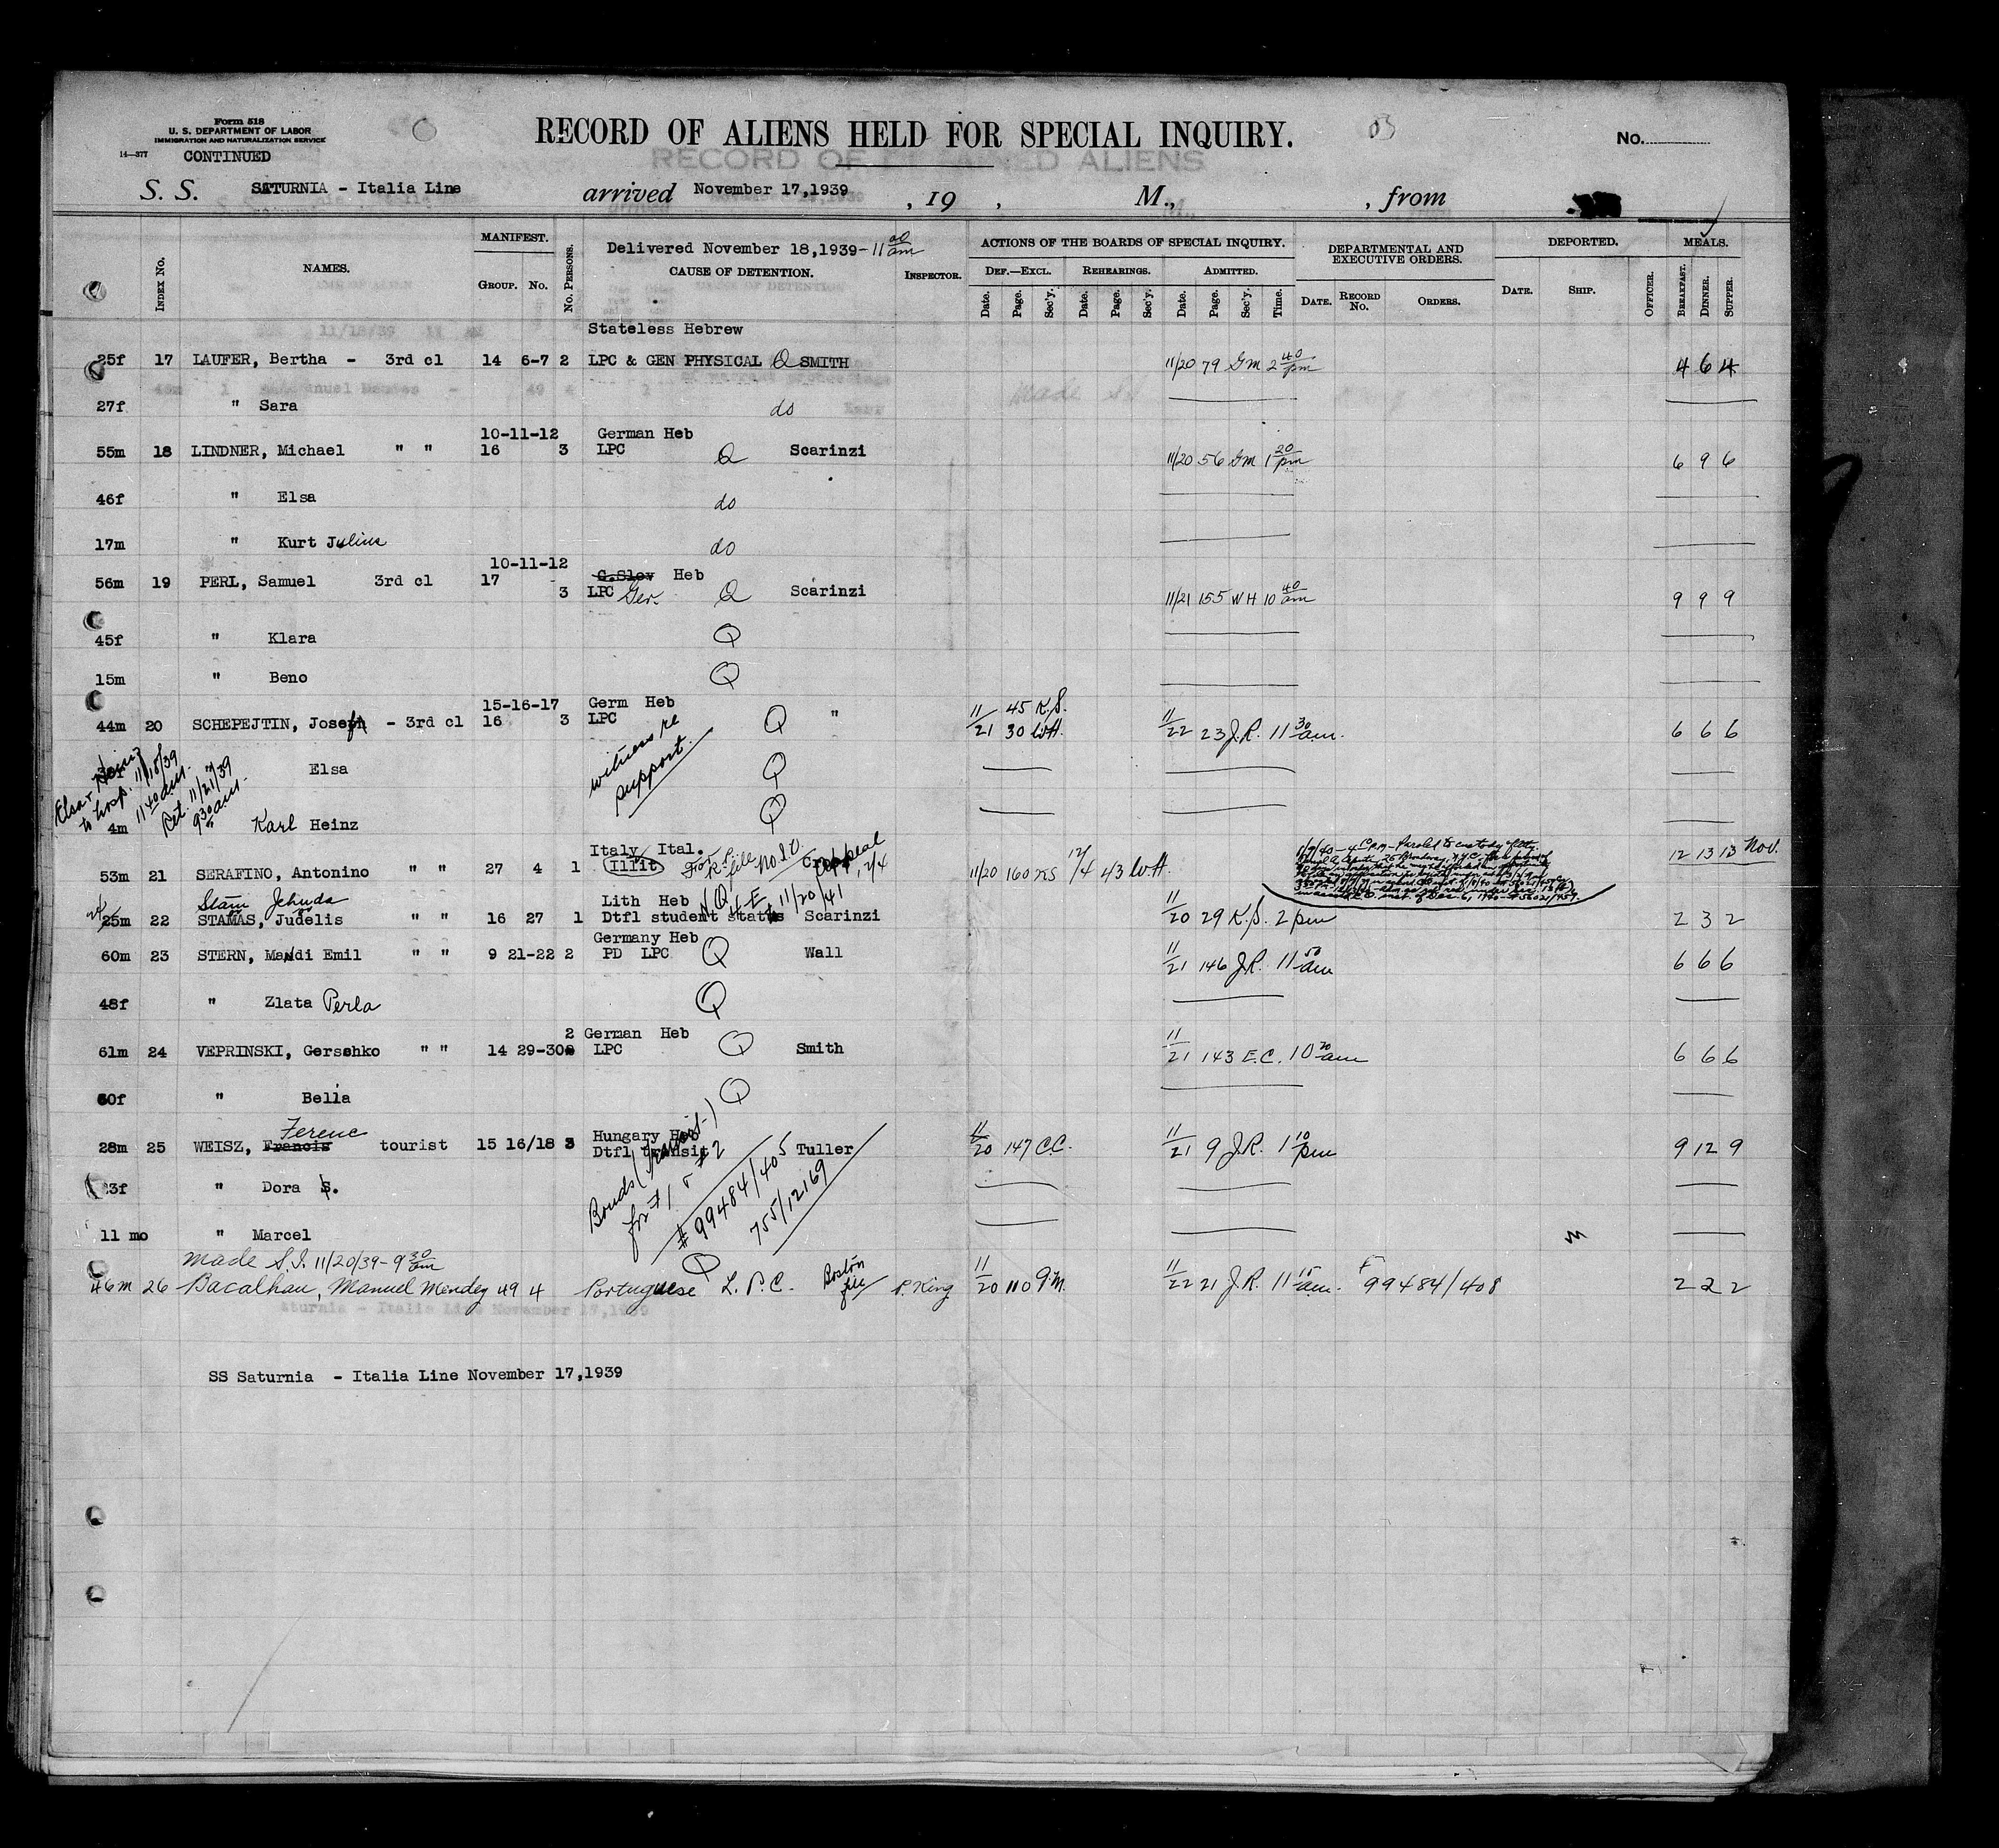 Form 518
U. S. DEPARTMENT OF LABOR
IMMIGRATION AND NATURALIZATION SERVICE
14—377
CONTINUED
RECORD OF ALIENS HELD FOR SPECIAL INQUIRY.
No.
S. S. SATURNIA - Italia Line arrived November 17,1939 , 19 , M., , from
INDEX No. NAMES. MANIFEST. GROUP. No. No. PERSONS. Delivered November 18,1939- 11 00 am CAUSE OF DETENTION. INSPECTOR. ACTIONS OF THE BOARDS OF SPECIAL INQUIRY. DEF.—EXCL. Date. Page. Sec'y. REHEARINGS. Date. Page. Sec'y. ADMITTED. Date. Page. Sec'y. Time. DEPARTMENTAL AND EXECUTIVE ORDERS. DATE. RECORD No. ORDERS. DEPORTED. DATE. SHIP. OFFICER. MEALS. BREAKFAST. DINNER. SUPPER.
Stateless Hebrew
25f 17 LAUFER, Bertha - 3rd cl 14 6-7 2 LPC & GEN PHYSICAL Q SMITH 11/20 79 GM 2 40 pm 4 6 4
27f " Sara do
10-11-12 German Heb
55m 18 LINDNER, Michael " " 16 3 LPC Q Scarinzi 11/20 56 GM 1 20 pm 6 9 6
46f " Elsa do
17m " Kurt Julius do
10-11-12 C.Slov Heb
56m 19 PERL, Samuel 3rd cl 17 3 LPC Ger. Q Scarinzi 11/21 155 WH 10 40 am 9 9 9
45f " Klara Q
15m " Beno Q
15-16-17 Germ Heb 11/21 45 K.S.
44m 20 SCHEPEJTIN, Joseph - 3rd cl 16 3 LPC Q " 30 W.H. 11/22 23 J.R. 11 30 am. 6 6 6
witness re support.
Elsa Q
Elsa + Heinz to hosp. 11/18/39 11 40 am. Ret. 11/21/39 9 30 am.
4m Karl Heinz Q
Italy Ital. Appeal 12/4
53m 21 SERAFINO, Antonino " " 27 4 1 Illit 11/20 160 KS 12/4 43 W.H. 12 13 13 Nov.
11/20/41
Stam Jehuda Lith Heb
25m 22 STAMAS, Judelis " " 16 27 1 Dtfl student status Scarinzi 11/20 29 K.S. 2 pm 2 3 2
Germany Heb
60m 23 STERN, Mandi Emil " " 9 21-22 2 PD LPC Q Wall 11/21 146 J.R. 11 50 am 6 6 6
48f " Zlata Perla Q
2 German Heb
61m 24 VEPRINSKI, Gerschko " " 14 29-30 LPC Q Smith 11/21 143 E.C. 10 20 am 6 6 6
60f " Bella Q
Ferenc Hungary Heb
28m 25 WEISZ, Francis tourist 15 16/18 3 Dtfl transit Tuller 11/20 147 C.C. 11/21 9 J.R. 1 10 pm 9 12 9
Bonds (transit.) for #1 + #2
#99484/405
755/12169
23f " Dora S.
11 mo " Marcel
Made S.I. 11/20/39 - 9 30 am Q
46m 26 Bacalhau, Manuel Mendez 49 4 Portuguese L.P.C. Boston file P. King 11/20 110 GM. 11/22 21 J.R. 11 15 am. 99484/408 2 2 2
SS Saturnia - Italia Line November 17,1939